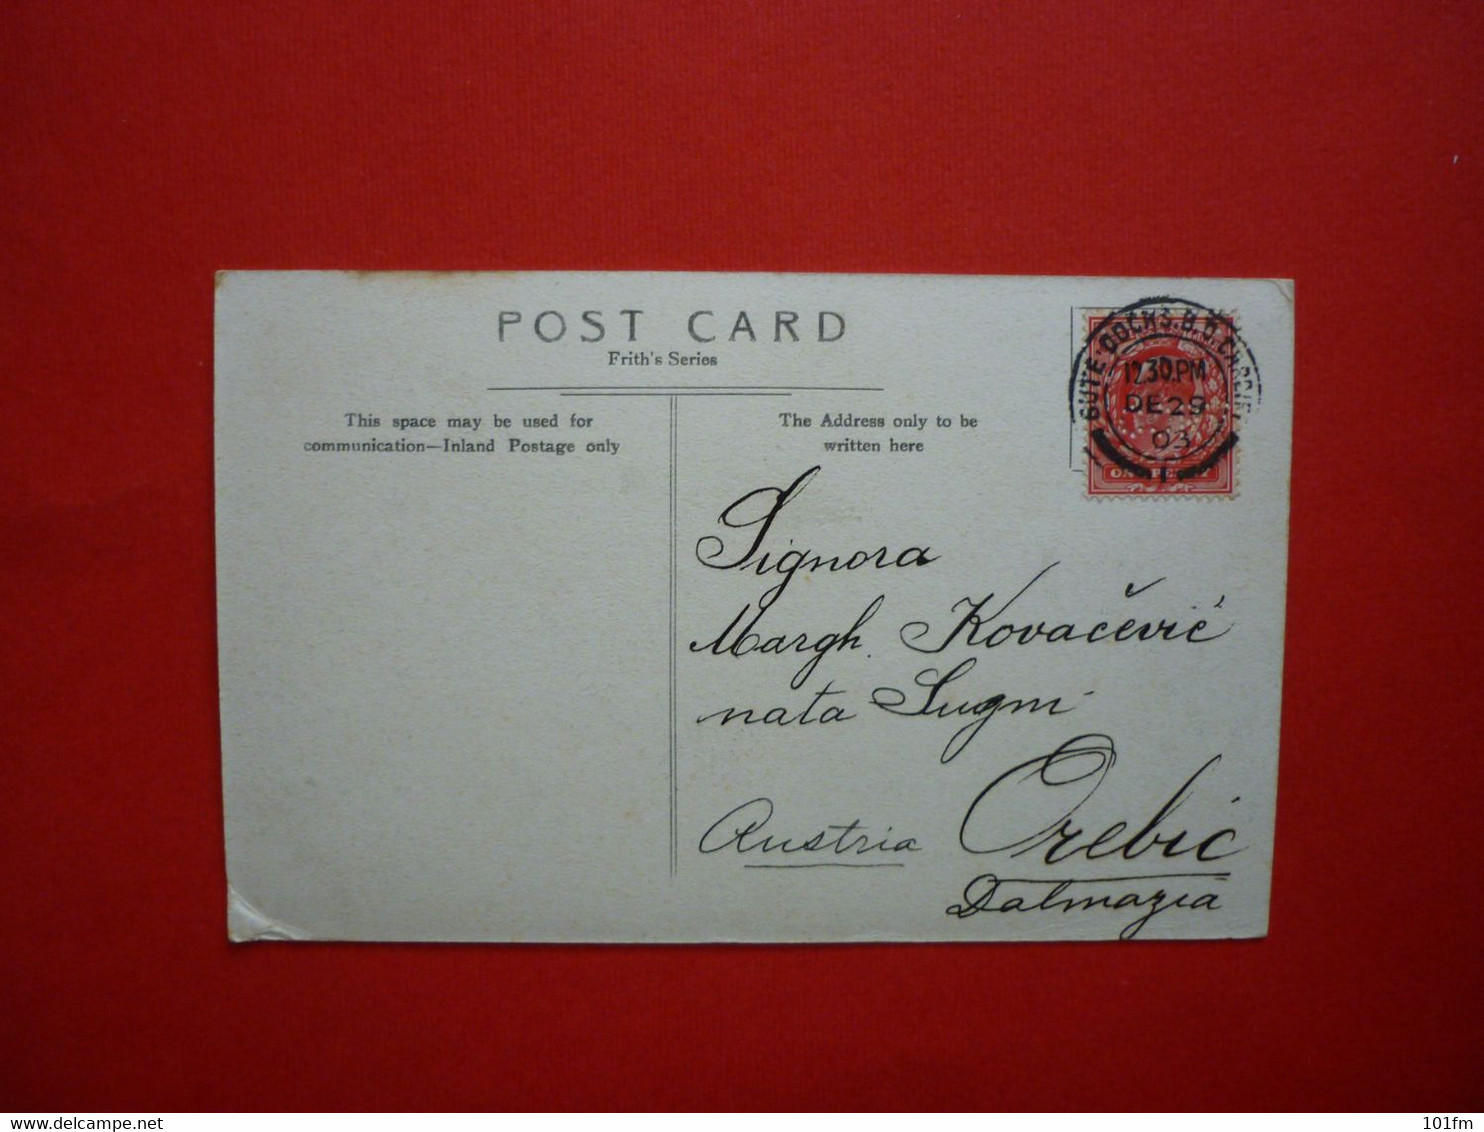 POST CARD
Frith's Series
This space may be used for
communication—Inland Postage only
The Address only to be
written here
BUTE·DOCKS.B.O.CARDIFF
12.30.PM
DE 29
03
1
ONE PENNY
Signora
Margh. Kovačević
nata Sugni
Austria Orebić
Dalmazia
delcampe.net
101fm